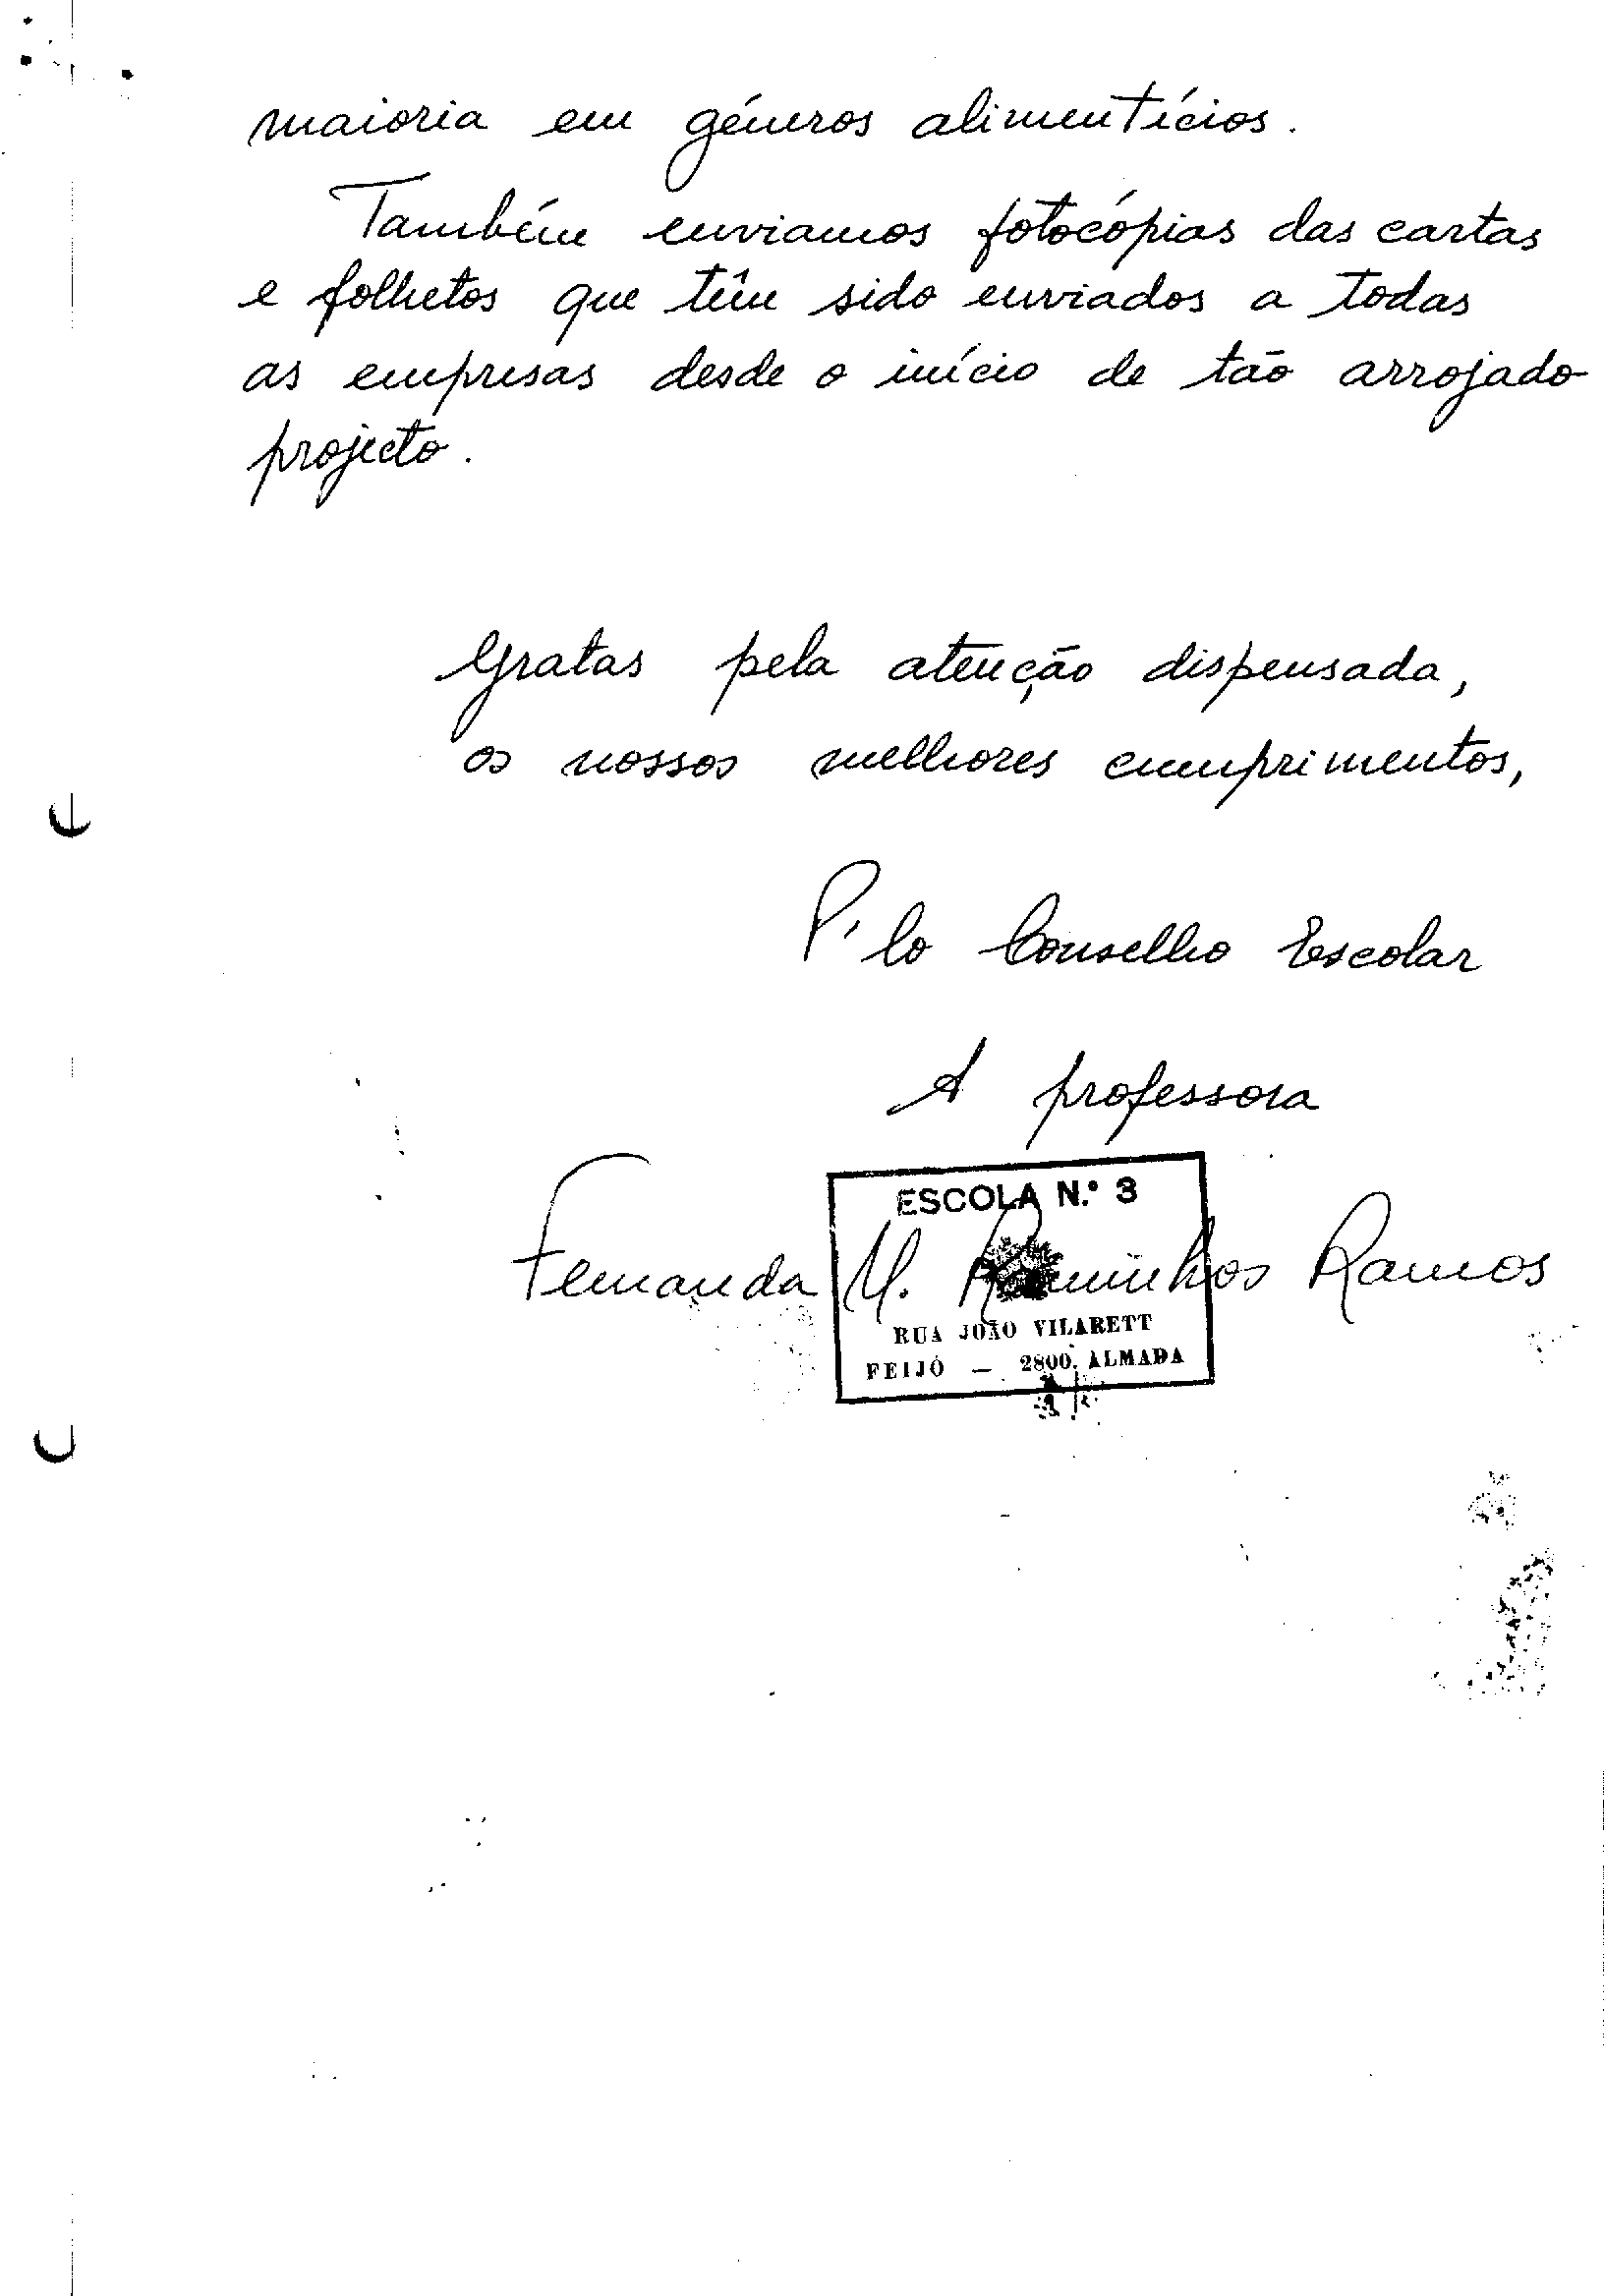 maioria em géneros alimentícios.
Também enviamos fotocópias das cartas
e folhetos que têm sido enviados a todas
as empresas desde o início de tão arrojado
projecto.
Gratas pela atenção dispensada,
os nossos melhores cumprimentos,
P'lo Conselho Escolar
A professora
ESCOLA N.º 3
Fernanda M. Raminhos Ramos
RUA JOÃO VILARETT
FEIJÓ — 2800 ALMADA